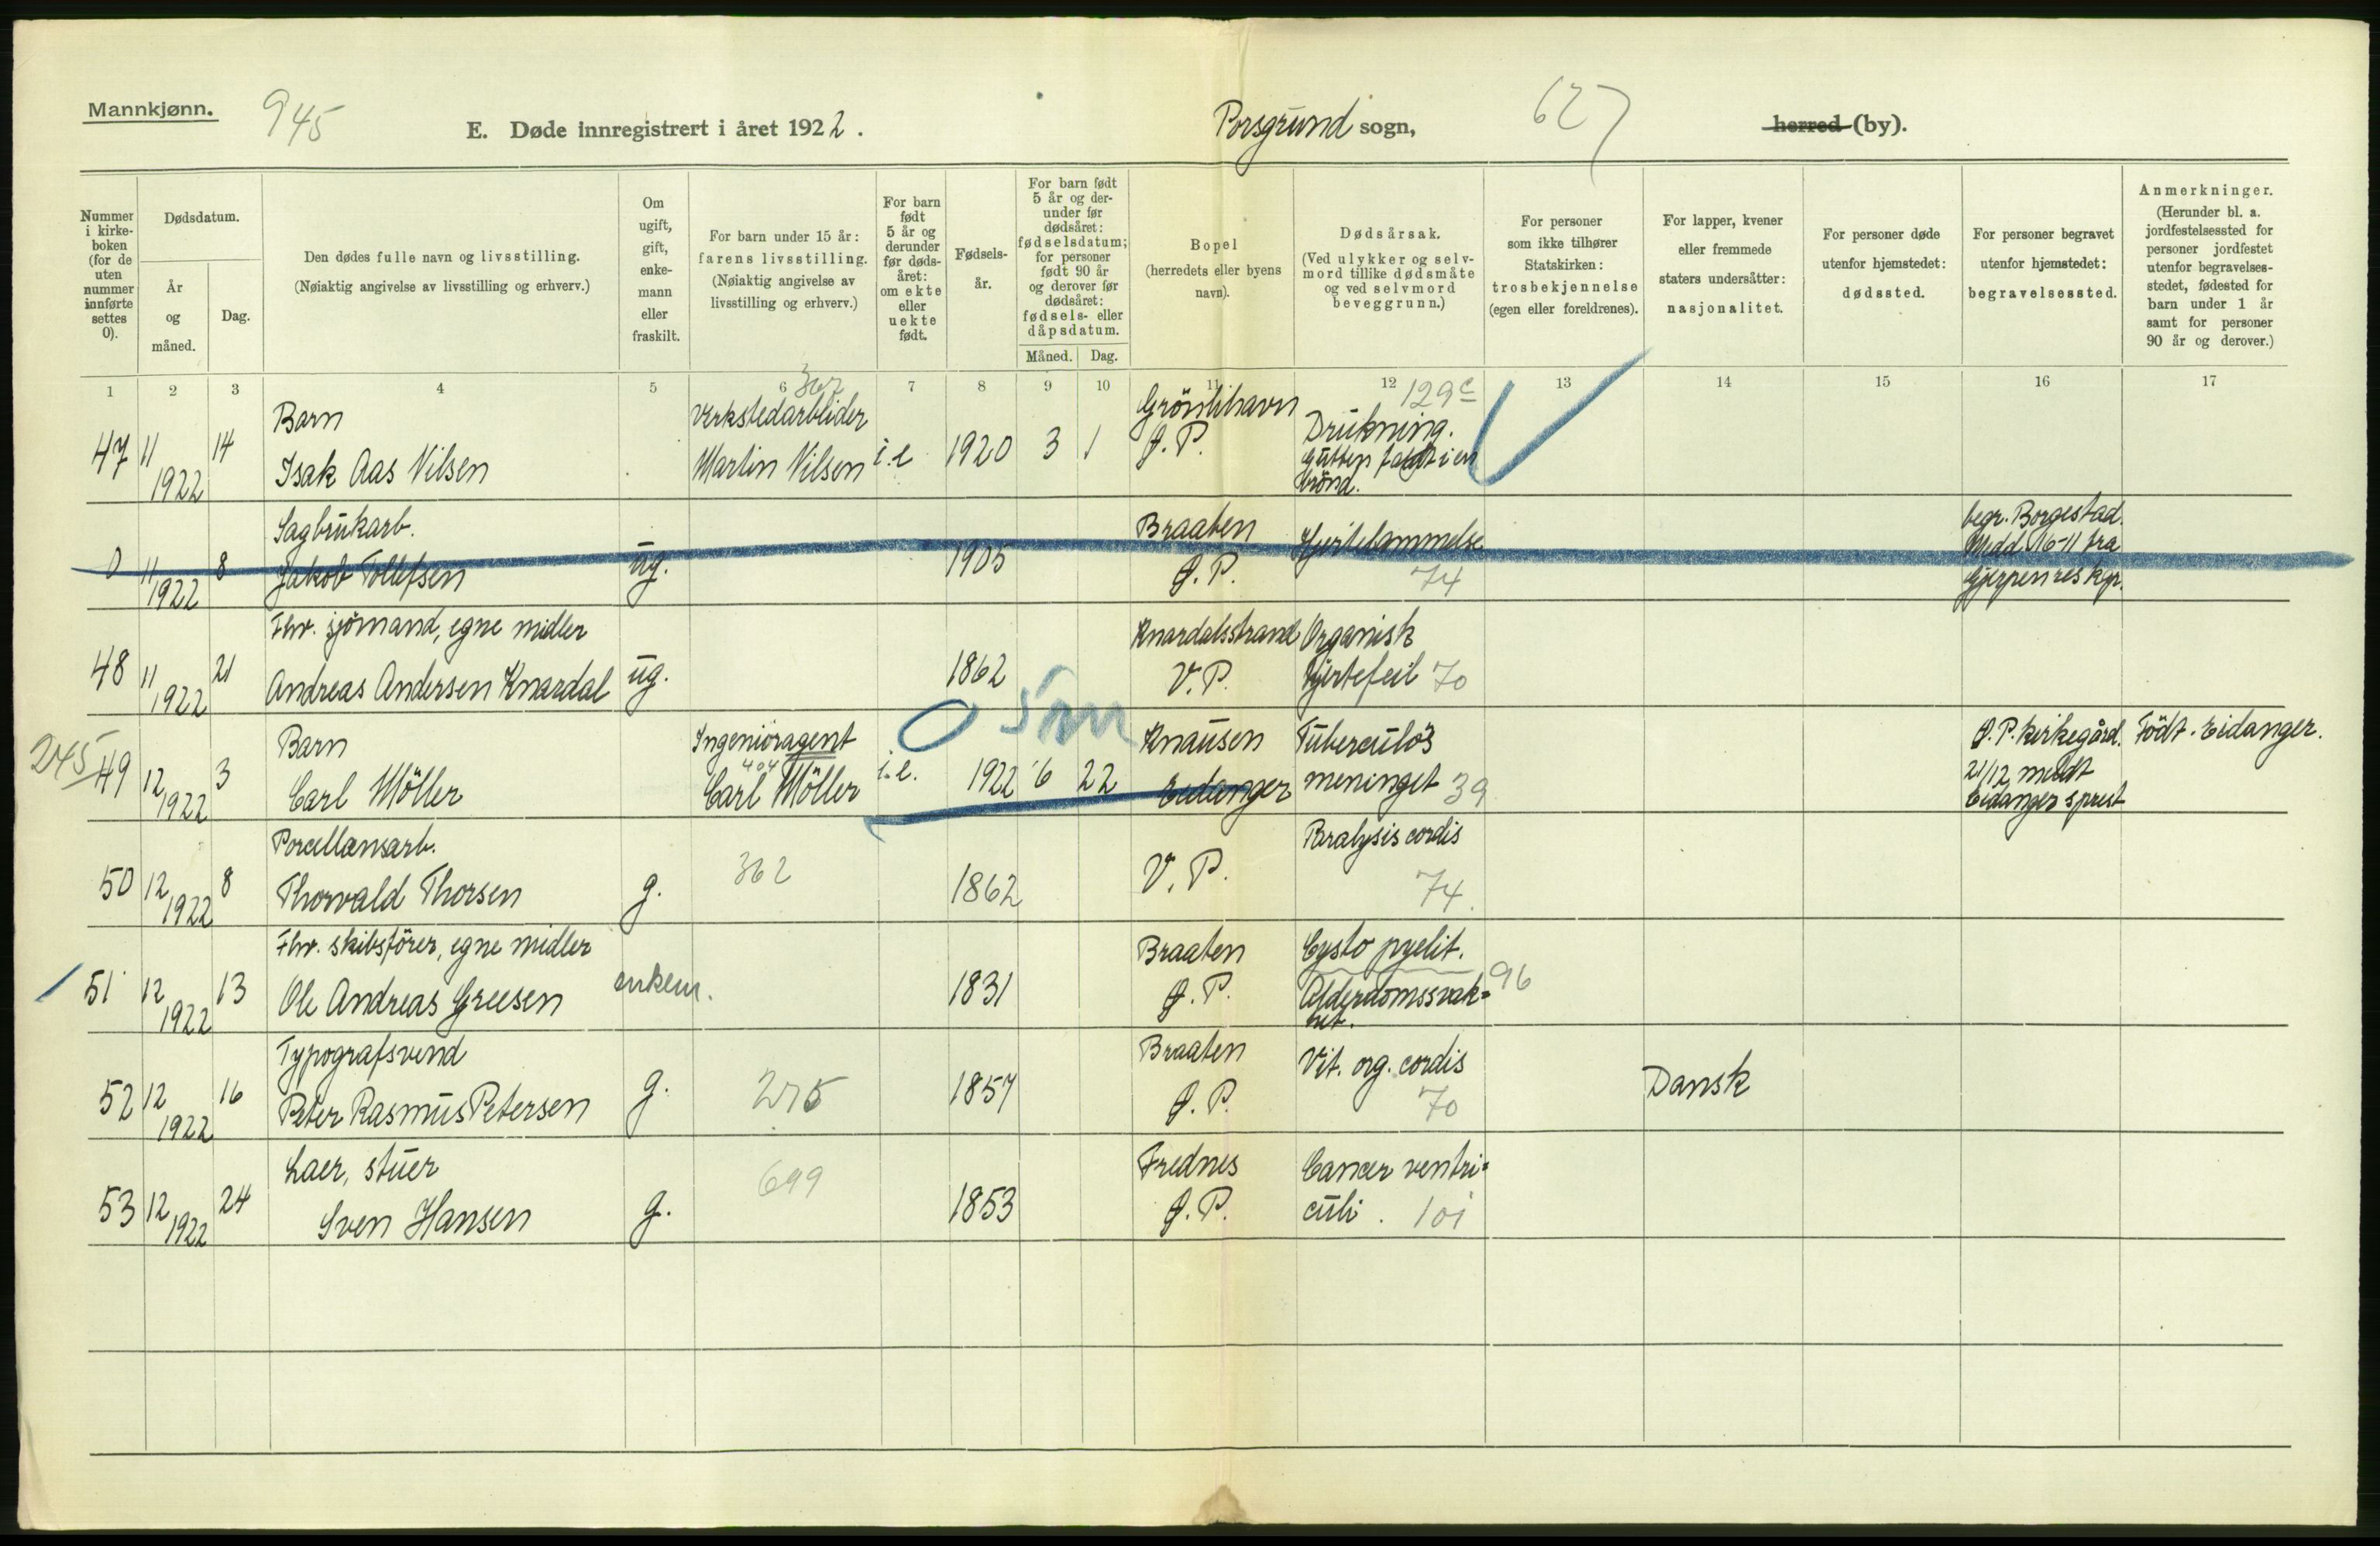 Mannkjønn.
945
E. Døde innregistrert i året 1922.
Porsgrund sogn,
627
herred (by).
Nummer i kirkeboken (for de uten nummer innførte settes 0).
Dødsdatum.
År og måned.
Dag.
Den dødes fulle navn og livsstilling.
(Nøiaktig angivelse av livsstilling og erhverv.)
Om ugift, gift, enkemann eller fraskilt.
For barn under 15 år: farens livsstilling.
(Nøiaktig angivelse av livsstilling og erhverv.)
For barn født 5 år og derunder før dødsåret: om ekte eller uekte født.
Fødselsår.
For barn født 5 år og derunder før dødsåret: fødselsdatum; for personer født 90 år og derover før dødsåret: fødsels- eller dåpsdatum.
Måned. Dag.
Bopel (herredets eller byens navn).
Dødsårsak.
(Ved ulykker og selvmord tillike dødsmåte og ved selvmord beveggrunn.)
For personer som ikke tilhører Statskirken: trosbekjennelse (egen eller foreldrenes).
For lapper, kvener eller fremmede staters undersåtter: nasjonalitet.
For personer døde utenfor hjemstedet: dødssted.
For personer begravet utenfor hjemstedet: begravelsessted.
Anmerkninger.
(Herunder bl. a. jordfestelsessted for personer jordfestet utenfor begravelsesstedet, fødested for barn under 1 år samt for personer 90 år og derover.)
1 2 3 4 5 6 7 8 9 10 11 12 13 14 15 16 17
367
129c
Barn
Verkstedarbeider
Grönlihavn
Drukning.
47 11 1922 14 Isak Aas Nilsen
Martin Nilsen i.e 1920 3 1 Ø.P.
Gutten faldt i en
brönd.
Sagbrukarb.
Braaten
Hjertelammelse
begr. Borgestad.
0 11 1922 8 Jakob Tollefsen ug. 1905 Ø.P. 74
Medd. 16-11 fra
Gjerpen res kap.
Fhv. sjömand, egne midler
Knardalsstrand
Organisk
48 11 1922 21 Andreas Andersen Knardal ug. 1862 V.P. Hjertefeil 70
Barn
Ingeniöragent
0 5 mr
Knausen
Tuberculös
Ø.P. kirkegård.
Födt. Eidanger.
245 49 12 1922 3 Carl Möller
404
Carl Möller i.e. 1922 6 22 Eidanger meninget 39
21/12 meldt
Eidanger sprest
Porcellænsarb.
Paralysis cordis
50 12 1922 8 Thorvald Thorsen g. 362 1862 V.P. 74.
Fhv. skibsförer, egne midler
Braaten
Cysto pyelit.
51 12 1922 13 Ole Andreas Greesen enkem. 1831 Ø.P. Alderdomssvak= 96
het.
Typografsvend
Braaten
Vit. org. cordis
52 12 1922 16 Peter Rasmus Petersen g. 275 1857 Ø.P. 70 Dansk
Laer, stuer
Frednes
Cancer ventri=
53 12 1922 24 Sven Hansen g. 699 1853 Ø.P. culi. 101